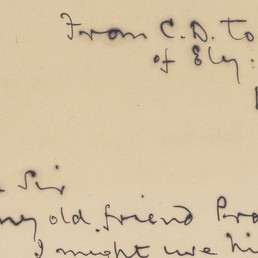 From C.D. to
of Ely.
Sir
my old friend Pro
I might use hi